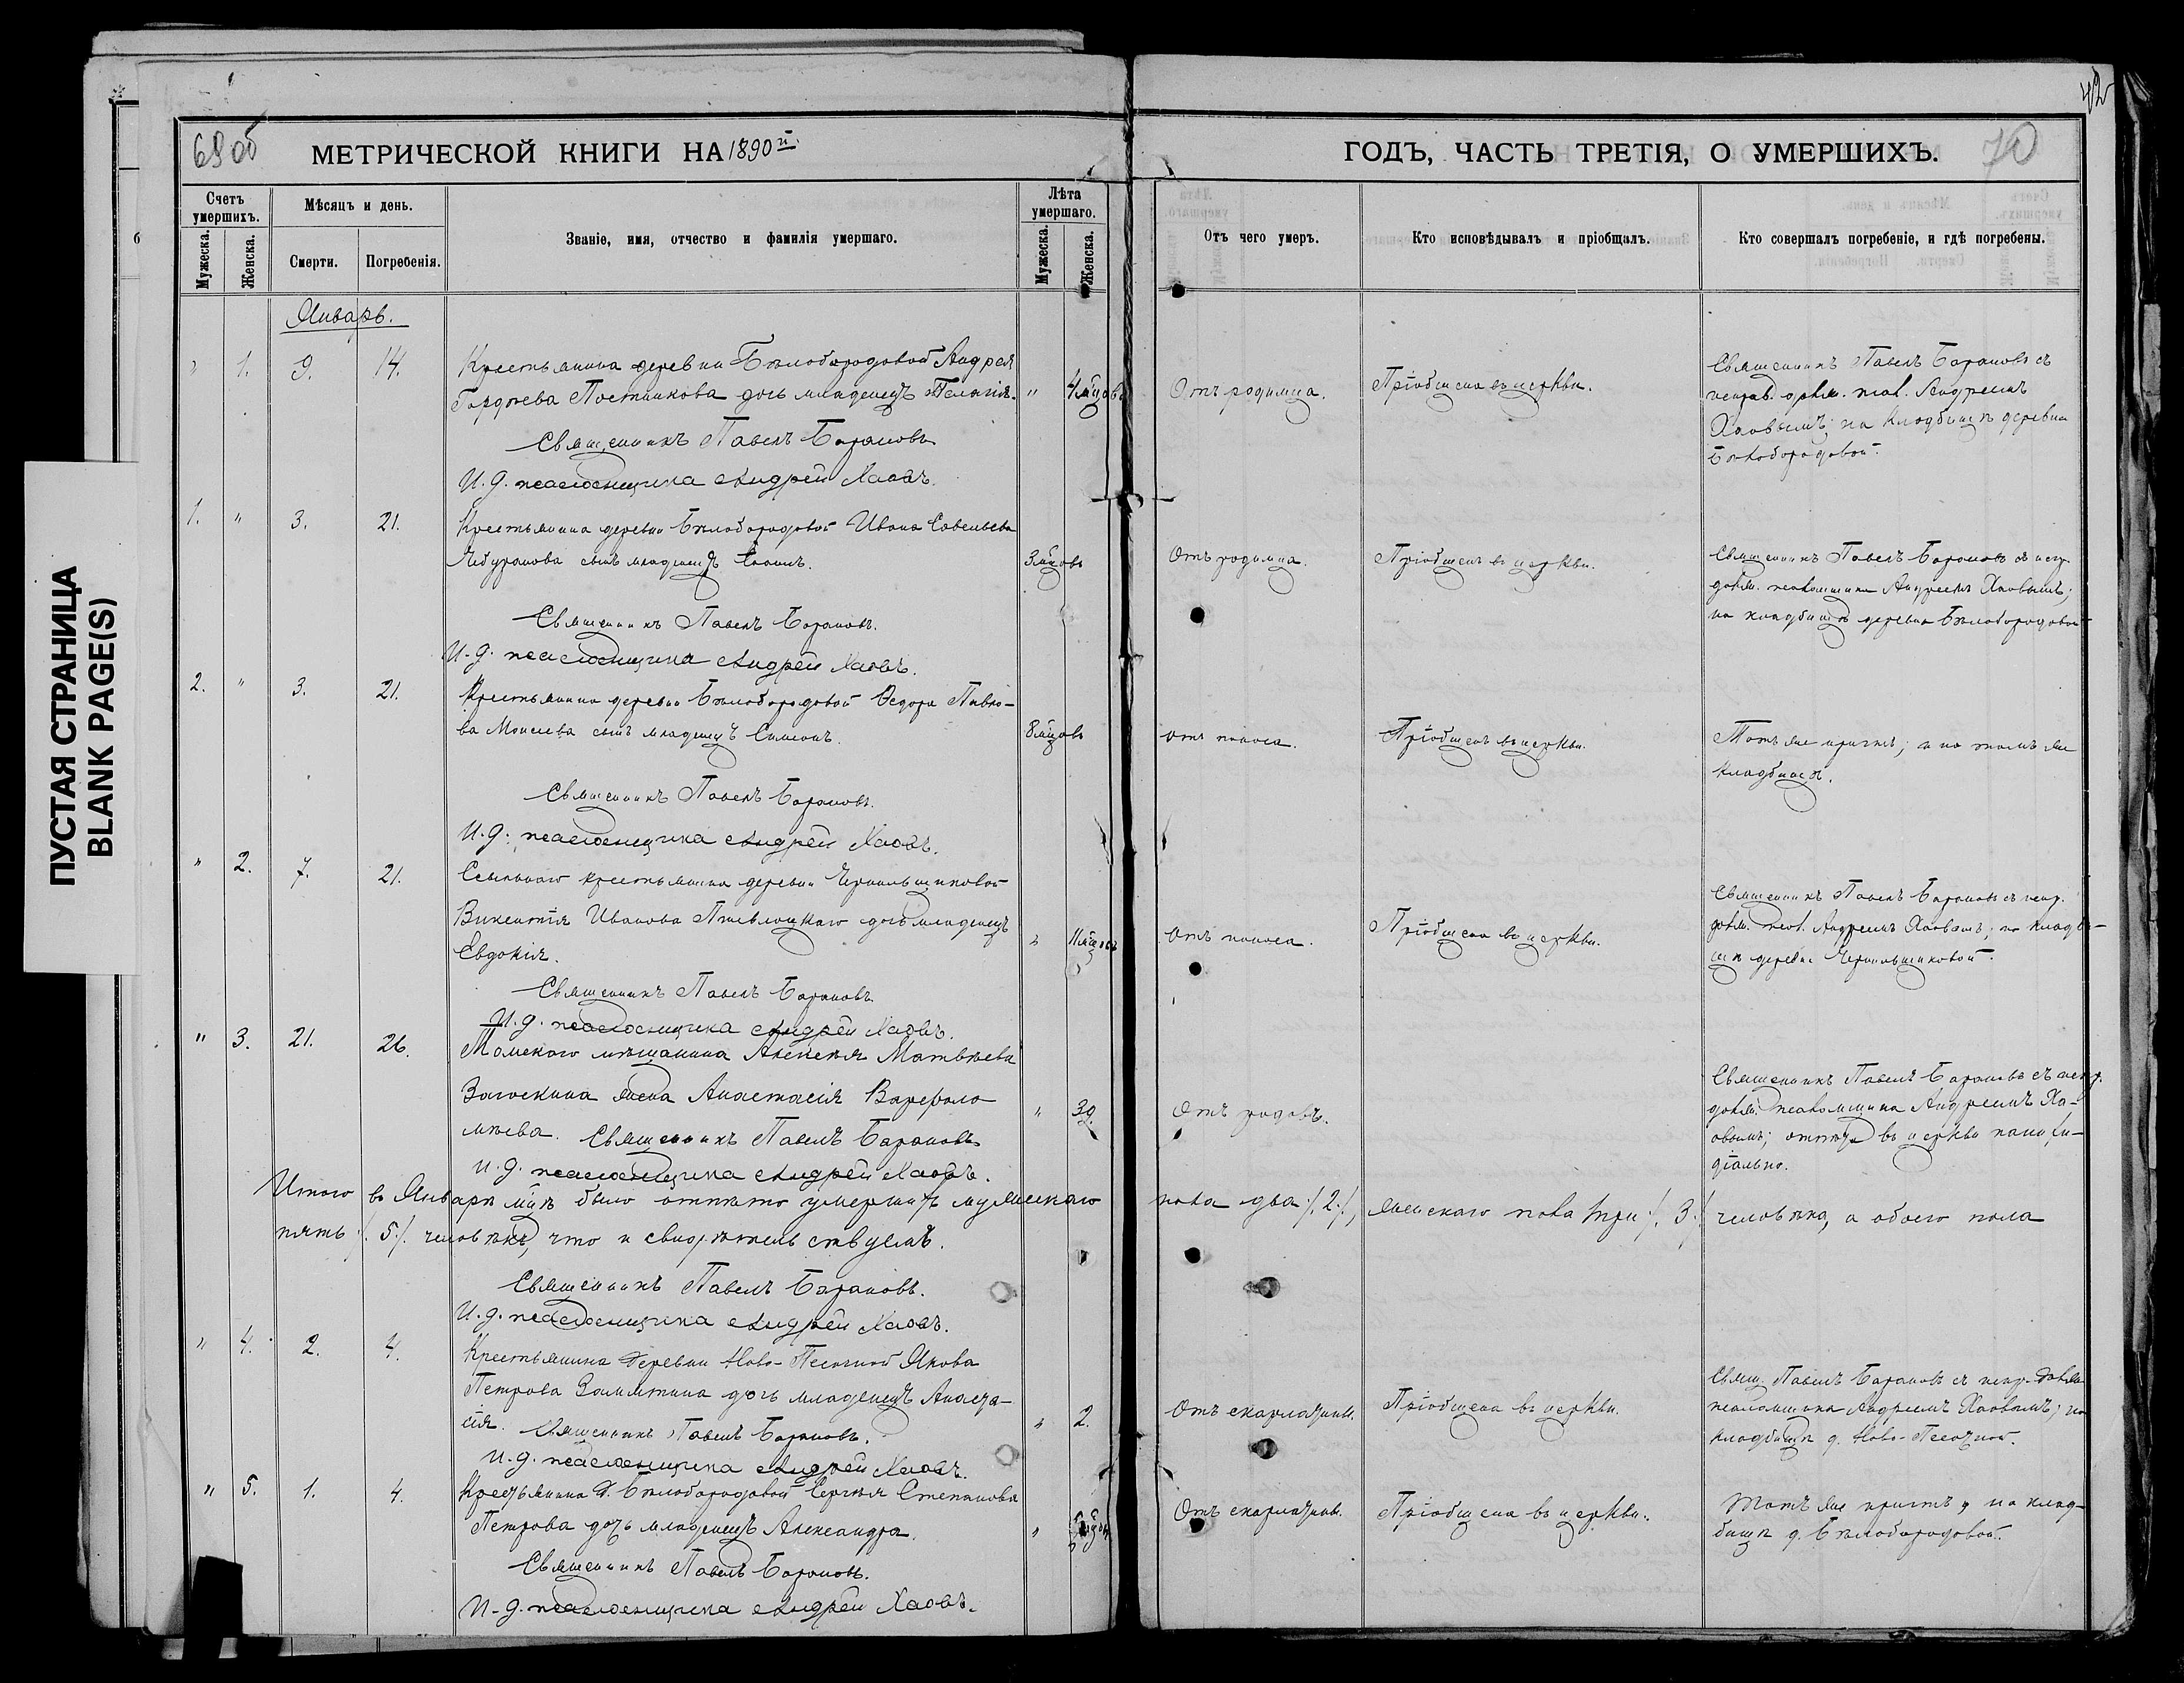 42
69 об
МЕТРИЧЕСКОЙ КНИГИ НА 1890 й
ГОДЪ, ЧАСТЬ ТРЕТІЯ, О УМЕРШИХЪ.
70
Счетъ умершихъ.
Мужеска.
Женска.
Мѣсяцъ и день.
Смерти.
Погребенія.
Званіе, имя, отчество и фамилія умершаго.
Лѣта умершаго.
Мужеска.
Женска.
Отъ чего умеръ.
Кто исповѣдывалъ и пріобщалъ.
Кто совершалъ погребеніе, и гдѣ погребены.
ПУСТАЯ СТРАНИЦА
BLANK PAGE(S)
Январь.
" 1. 9. 14.
Крестьянина деревни Бѣлобородовой Андрея
Гордѣева Постникова дочь младенецъ Пелагія.
" 4 мцовъ
Отъ родимца.
Пріобщена въ церкви.
Священникъ Павелъ Барановъ съ
исправ. долж. псал. Андреемъ
Хаовымъ; на кладбищѣ деревни
Бѣлобородовой.
Священникъ Павелъ Барановъ
И. д. псаломщика Андрей Хаовъ.
1. " 3. 21.
Крестьянина деревни Бѣлобородовой Ивана Савельева
Чебуранова сынъ младенецъ
3 мцовъ
Отъ родимца.
Пріобщенъ въ церкви.
Священникъ Павелъ Барановъ съ испр.
долж. псаломщика Андреемъ Хаовымъ;
на кладбищѣ деревни Бѣлобородовой
Священникъ Павелъ Барановъ.
И. д. псаломщика Андрей Хаовъ.
2. " 3. 21.
Крестьянина деревни Бѣлобородовой Ѳедора Павло-
ва Моисеева сынъ младенецъ Симеонъ.
8 мцовъ
отъ поноса.
Пріобщенъ въ церкви.
Тотъ же причтъ; и на томъ же
кладбищѣ.
Священникъ Павелъ Барановъ.
И. д. псаломщика Андрей Хаовъ.
" 2. 7. 21.
Ссыльнаго крестьянина деревни Чернильщиковой
Викентія Иванова дочь младенецъ
Евдокія.
" 11 мцовъ
Отъ поноса.
Пріобщена въ церкви.
Священникъ Павелъ Барановъ съ испр.
долж. псал. Андреемъ Хаовымъ; на кладби-
щѣ деревни Чернильщиковой.
Священникъ Павелъ Барановъ
И. д. псаломщика Андрей Хаовъ.
" 3. 21. 26.
Томскаго мѣщанина Алексѣя Матвѣева
Загоскина жена Анастасія Варфоло-
мѣева. Священникъ Павелъ Барановъ
" 39.
Отъ родовъ.
Священникъ Павелъ Барановъ съ испр.
долж. псаломщика Андреемъ Ха-
овымъ; отпѣта въ церкви
И. д. псаломщика Андрей Хаовъ.
Итого въ Январѣ мцѣ было отпѣто умершихъ мужескаго пола два /. 2 ./, женскаго пола три /. 3 ./ человѣка, а обоего пола
пять /. 5 ./ человѣкъ, что и свидѣтельствуемъ.
Священникъ Павелъ Барановъ.
И. д. псаломщика Андрей Хаовъ.
" 4. 2. 4.
Крестьянина деревни Ново-Песочной Якова
Петрова Замятина дочь младенецъ Анаста-
сія. Священникъ Павелъ Барановъ.
" 2.
Отъ скарлатины.
Пріобщена въ церкви.
Свящ. Павелъ Барановъ съ испр. долж.
псаломщика Андреемъ Хаовымъ; на
кладбищѣ д. Ново-Песочной.
И. д. псаломщика Андрей Хаовъ.
" 5. 1. 4.
Крестьянина д. Бѣлобородовой Сергѣя Степанова
Петрова дочь младенецъ Александра.
Отъ скарлатины.
Пріобщена въ церкви.
Тотъ же причтъ, на клад-
бищѣ д. Бѣлобородовой.
Священникъ Павелъ Барановъ.
И. д. псаломщика Андрей Хаовъ.